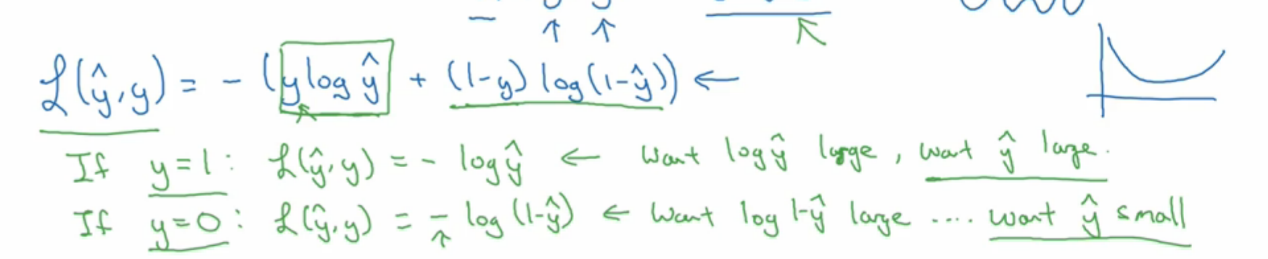 ℒ(ŷ,y) = - (y log ŷ + (1-y) log(1-ŷ)) ←
If y=1 : ℒ(ŷ,y) = - log ŷ ← Want log ŷ large , want ŷ large.
If y=0 : ℒ(ŷ,y) = - log (1-ŷ) ← Want log 1-ŷ large .... want ŷ small